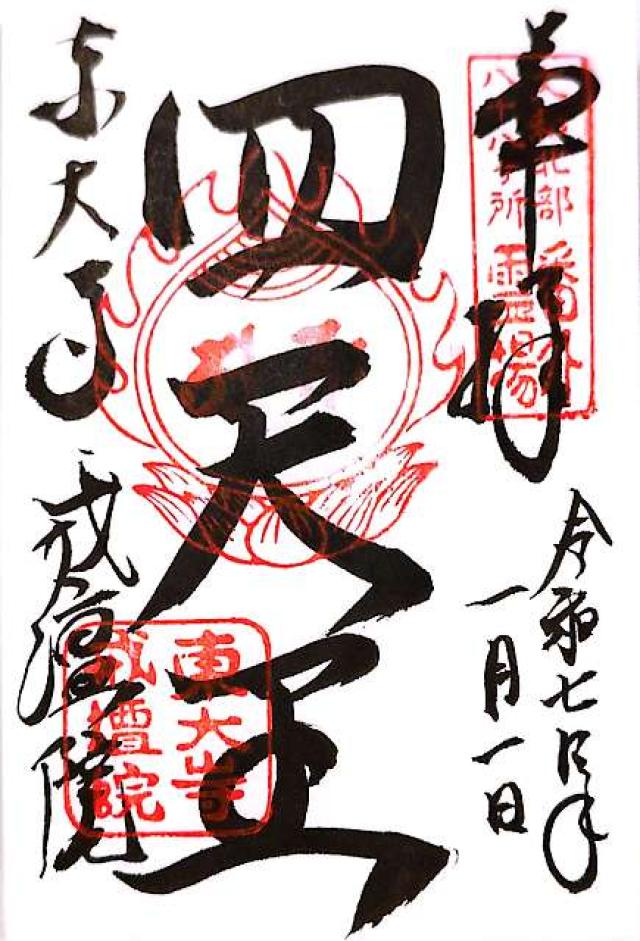 奉拝
大和北部 番外
八十八ヶ所 霊場
令和七年
一月一日
四天王
東大寺 戒壇院
東大寺
戒壇院